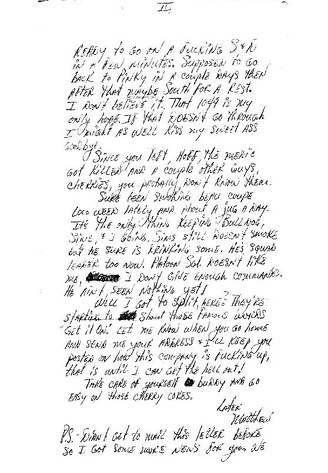 II
READY TO GO ON A FUCKING S & D
IN A FEW MINUTES. SUPPOSED TO GO
BACK TO PINKY IN A COUPLE DAYS THEN
AFTER THAT MAYBE SOUTH FOR A REST.
I DON'T BELIEVE IT. THAT 1049 IS MY
ONLY HOPE. IF THAT DOESN'T GO THROUGH
I MIGHT AS WELL KISS MY SWEET ASS
GOODBY!
SINCE YOU LEFT, HOFF, THE MEDIC
GOT KILLED AND A COUPLE OTHER GUYS,
CHERRIES, YOU PROBABLY DON'T KNOW THEM.
SURE BEEN SMOKING BEAU COUPE
LOCO WEED LATELY AND ABOUT A JUG A DAY.
ITS THE ONLY THING KEEPING BULLDOG,
SINS, & I GOING. SINS STILL DOESN'T SMOKE
BUT HE SURE IS DRINKING SOME. HES SQUAD
LEADER TOO NOW. PLATOON SGT. DOESN'T LIKE
ME, I DON'T GIVE ENOUGH COMMANDS.
HE AIN'T SEEN NOTHING YET!
WELL I GOT TO SPLIT, THEY'RE
STARTING TO SHOUT THOSE FAMOUS WORDS
GET IT ON! LET ME KNOW WHEN YOU GO HOME
AND SEND ME YOUR ADDRESS & I'LL KEEP YOU
POSTED ON HOW THIS COMPANY IS FUCKING UP,
THAT IS UNTIL I CAN GET THE HELL OUT!
TAKE CARE OF YOURSELF BUDDY AND GO
EASY ON THOSE CHERRY COKES.
LATER
MATTHEW
P.S. DIDN'T GET TO MAIL THIS LETTER BEFORE
SO I GOT SOME MORE NEWS FOR YOU. WE